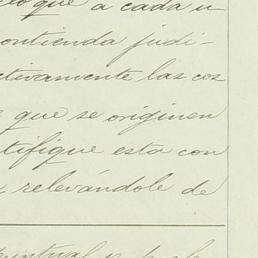 lo que a cada u
contienda judi-
ctivamente las cos
que se originen
tifique esta con
relevándole de
puntual